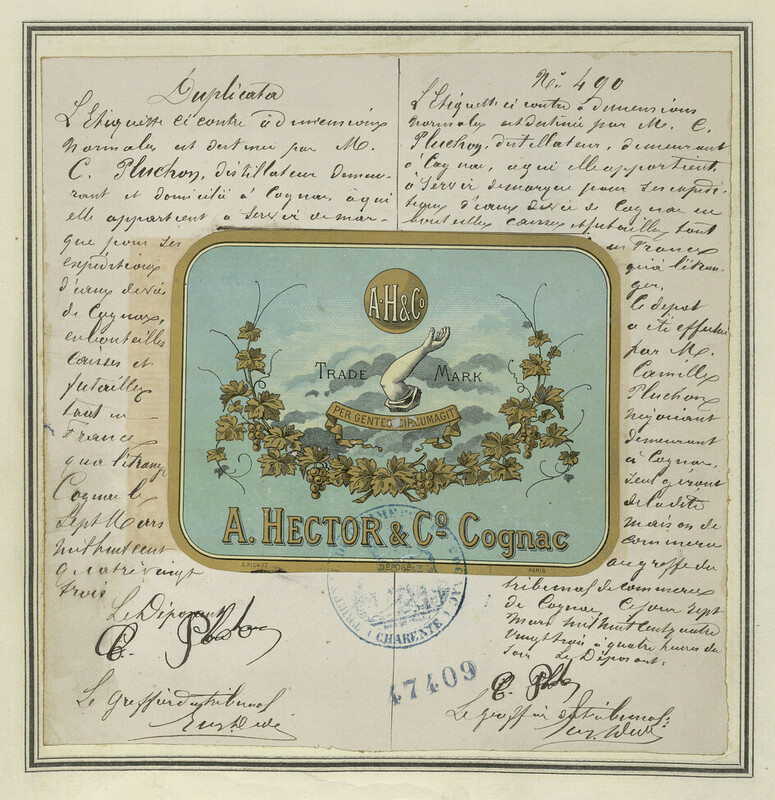 Duplicata
L'Etiquette ci contre à dimensions
normales est destinée par M.
C. Pluchon, distillateur demeu-
rant et domicilié à Cognac, à qui
elle appartient à servir de mar-
que pour ses
expéditions
d'eaux de vie
de Cognac,
en bouteilles
caisses et
futailles
tant en
France
qu'à l'étranger
Cognac le
Sept Mars
mil huit cent
quatre vingt
trois
Le Déposant
C. Pluchon
Le greffier du tribunal
No. 490
L'Etiquette ci contre à dimensions
normales est destinée par M. C.
Pluchon, distillateur, demeurant
à Cognac, à qui elle appartient,
à servir de marque pour ses expédi-
tions d'eaux de vie de Cognac en
bouteilles caisses et futailles tant
en France
qu'à l'étran-
ger.
Le dépôt
a été effectué
par M.
Camille
Pluchon
négociant
demeurant
à Cognac,
seul gérant
de la dite
maison de
commerce
au greffe du
tribunal de commerce
de Cognac, ce jour sept
Mars mil huit cent quatre
vingt trois à quatre heures du
soir. Le Déposant.
C. Pluchon
Le greffier du tribunal.
A.H&Co
TRADE MARK
PER GENTES CIRCUMAGIT
A. HECTOR & Co. Cognac
DÉPOSÉ
PARIS
CHARENTE
47409